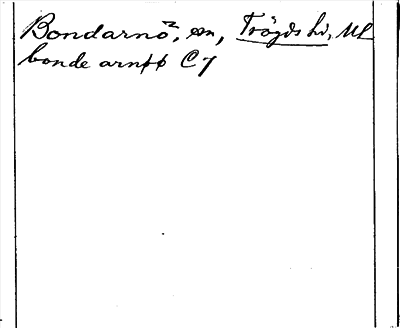 Bondarnö², en, Trögds hd, Upl.
bonde arnþþ C7